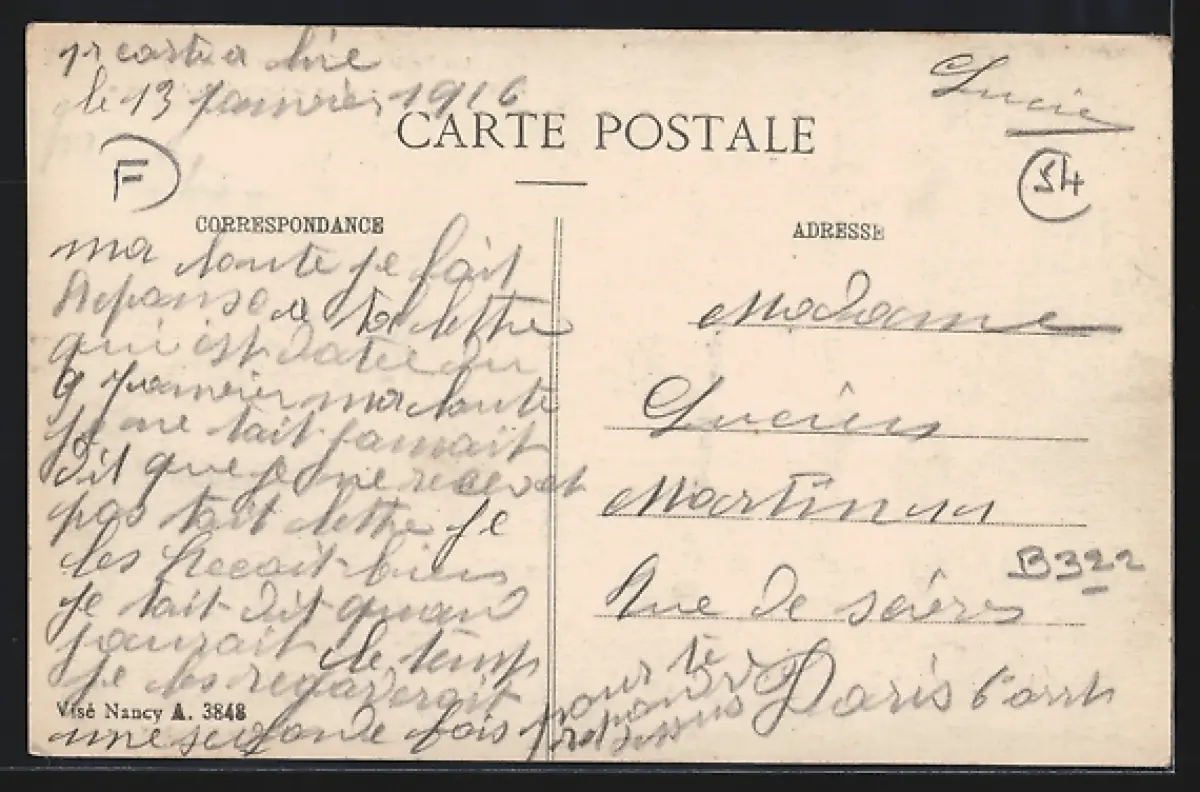 1r carte a lire
le 13 janvier 1916
Lucie
CARTE POSTALE
F
54
CORRESPONDANCE
ADRESSE
ma toute je fait
reponse a ta lettre
qui est datee du
9 janvier ma toute
je ne tait jamait
dit que je ne recevet
pas tait lettre je
les recoit bien
je tait dit quand
jaurait le temp
je les regarderait
une segonde fois pour te
repondre
dessus
Visé Nancy A. 3848
Madame
Lucien
Martin
B322
Rue de sèvres
Paris 6 arrt